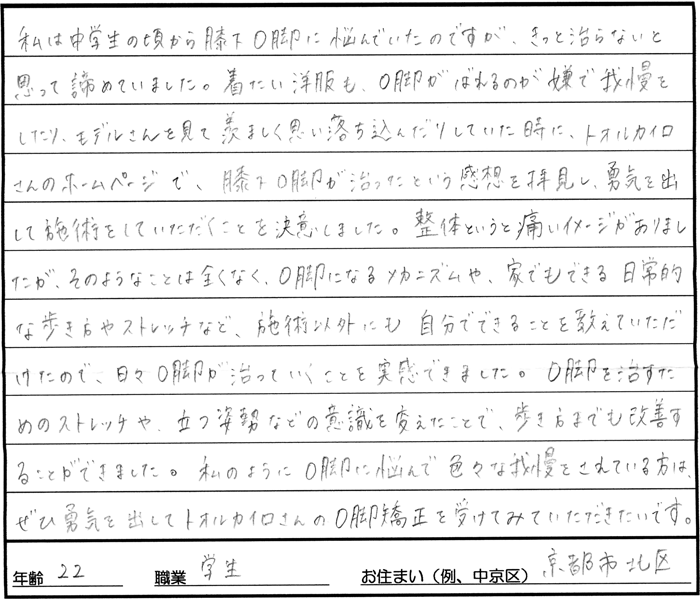 私は中学生の頃から膝下O脚に悩んでいたのですが、きっと治らないと
思って諦めていました。着たい洋服も、O脚がばれるのが嫌で我慢を
したり、モデルさんを見て羨ましく思い落ち込んだりしていた時に、トオルカイロ
さんのホームページで、膝下O脚が治ったという感想を拝見し、勇気を出
して施術をしていただくことを決意しました。整体というと痛いイメージがありまし
たが、そのようなことは全くなく、O脚になるメカニズムや、家でもできる日常的
な歩き方やストレッチなど、施術以外にも自分でできることを教えていただ
けたので、日々O脚が治っていくことを実感できました。O脚を治すた
めのストレッチや、立つ姿勢などの意識を変えたことで、歩き方までも改善す
ることができました。私のようにO脚に悩んで色々な我慢をされている方は、
ぜひ勇気を出してトオルカイロさんのO脚矯正を受けてみていただきたいです。
年齢 22 職業 学生 お住まい（例、中京区） 京都市北区